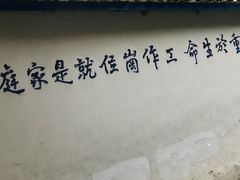 重於生命 工作崗位就是家庭